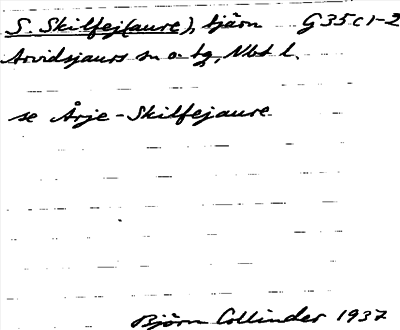 S. Skilfej(aure), tjärn G35c1-2
Arvidsjaurs sn o. tg, Nbt l.
se Årje-Skilfejaure.
Björn Collinder 1937